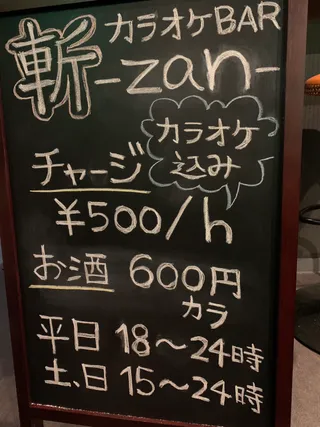 斬 カラオケBAR
-zan-
カラオケ
込み
チャージ
¥500/h
お酒 600円
カラ
平日 18〜24時
土、日 15〜24時